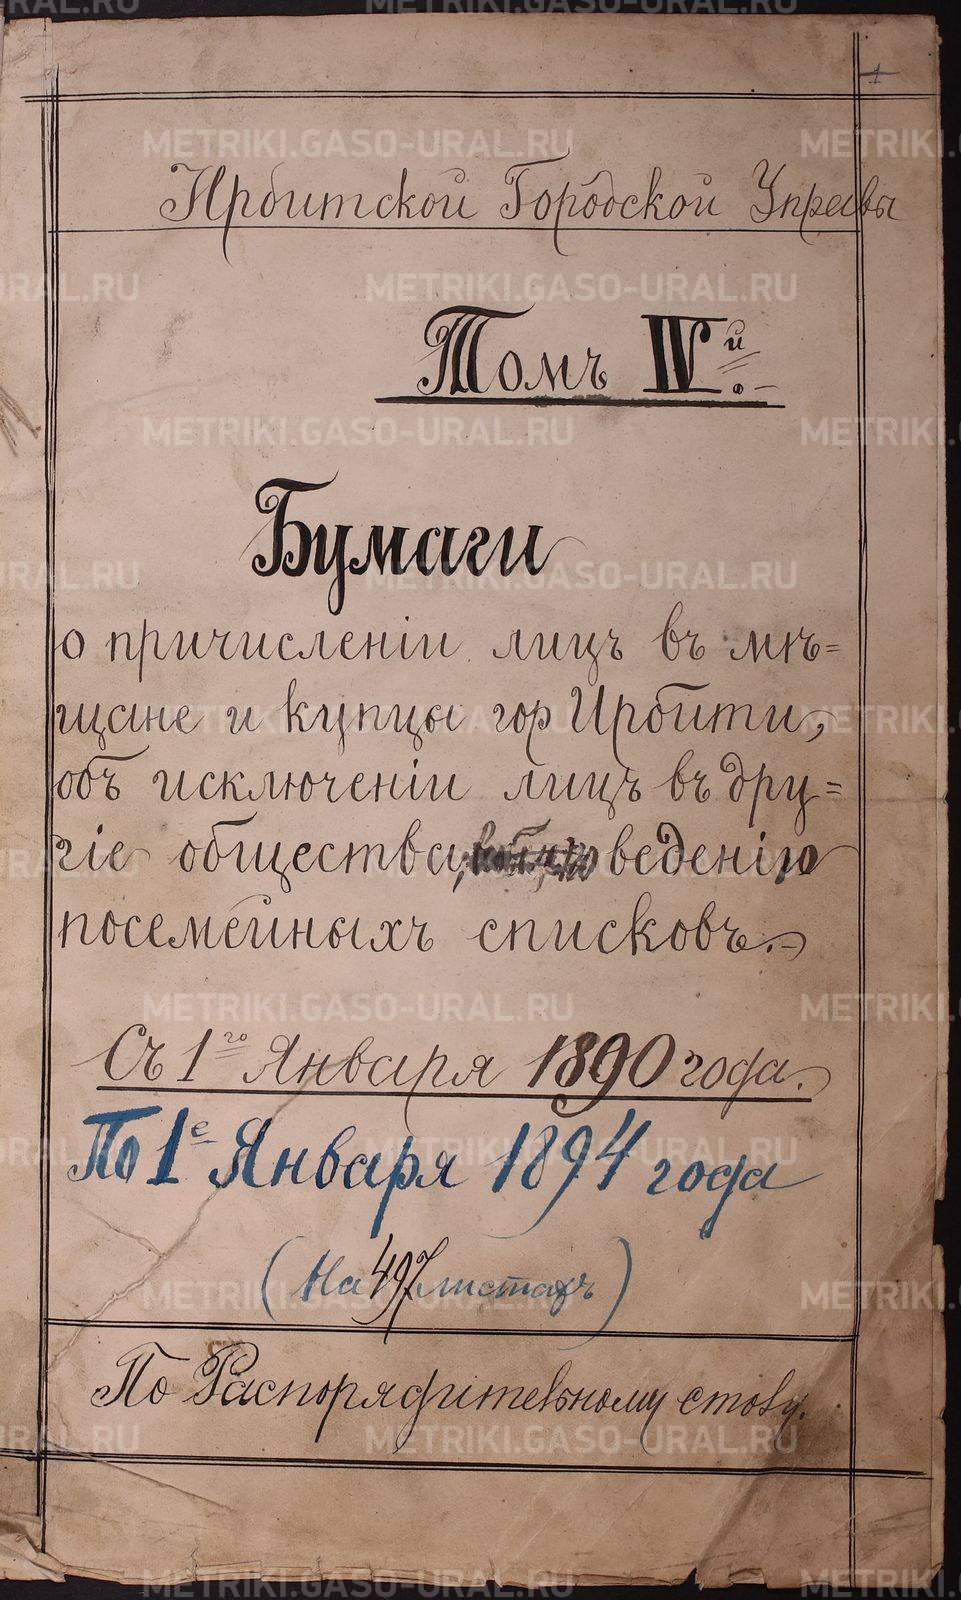 1
Ирбитской Городской Управы
Томъ IVй.
Бумаги
о причисленіи лицъ въ мѣ=
щане и купцы гор Ирбити,
объ исключеніи лицъ въ дру=
гіе общества, веденію
посемейныхъ списковъ.
Съ 1го Января 1890 года.
По 1е Января 1894 года
(На 497 листахъ)
По Распорядительному столу.
METRIKI.GASO-URAL.RU